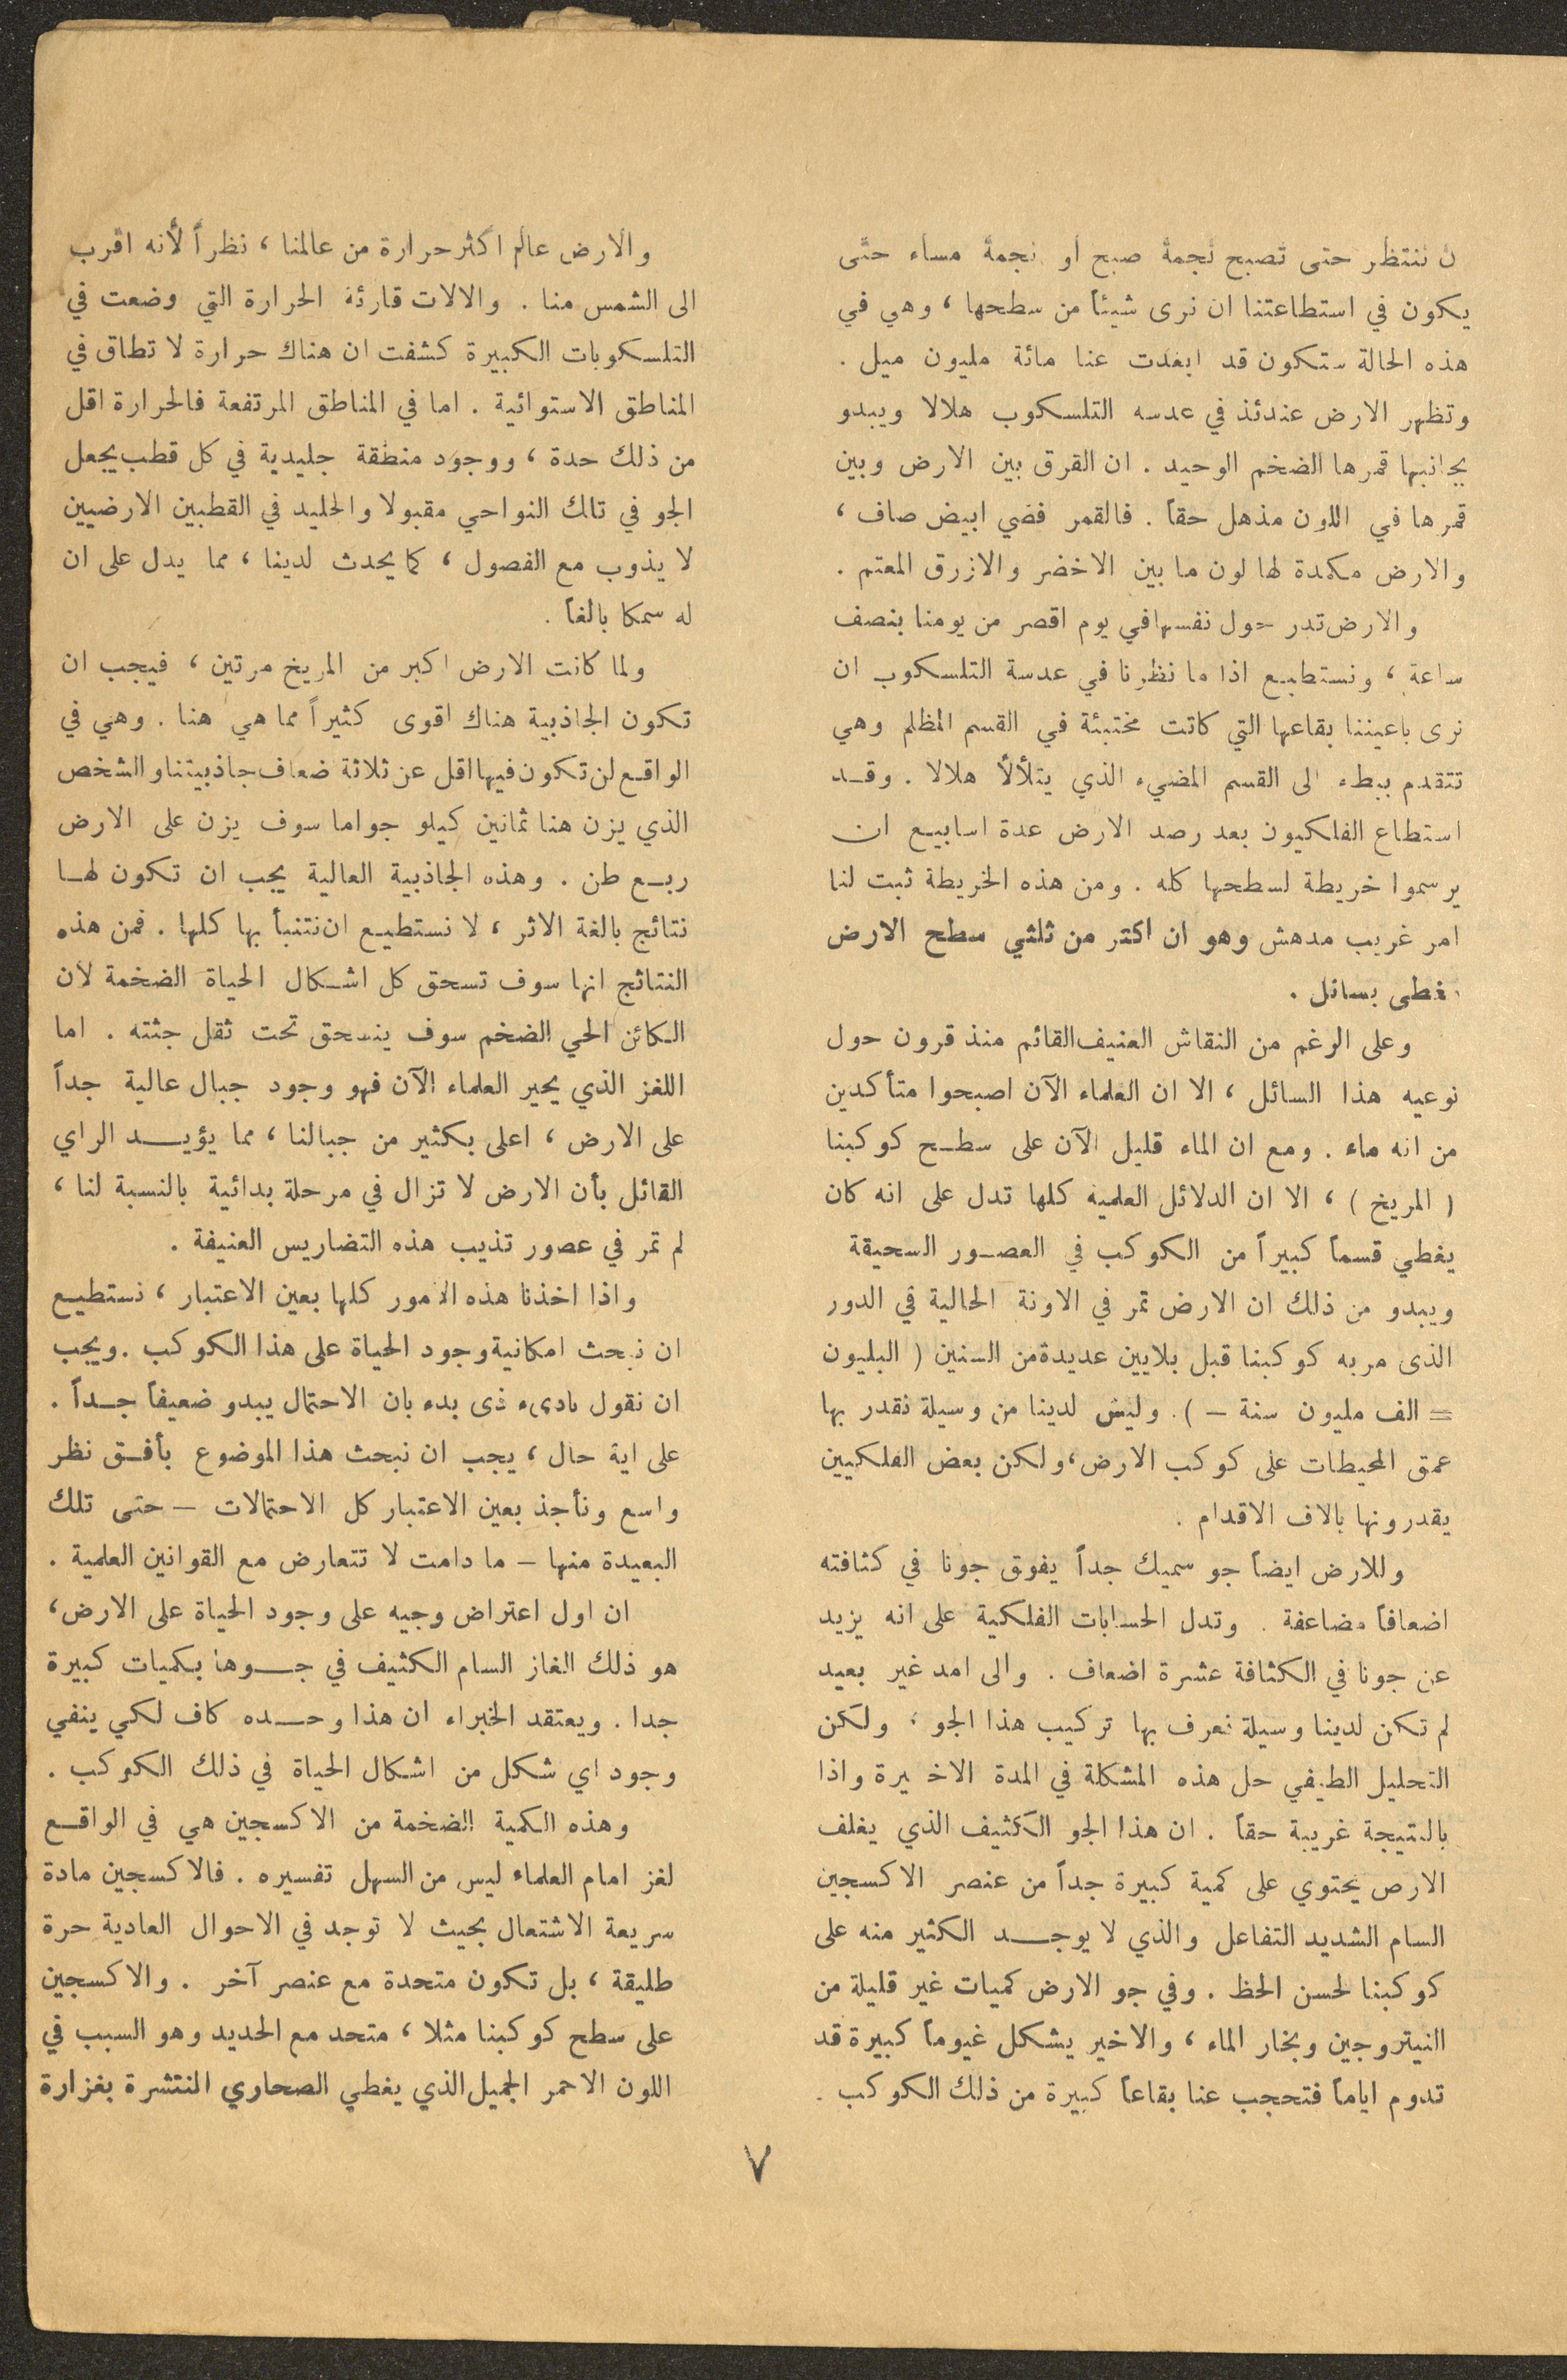 ن ننتظر حتى تصبح نجمة صبح او نجمة مساء حتى
يكون في استطاعتنا ان نرى شيئاً من سطحها ، وهي في
هذه الحالة ستكون قد ابعدت عنا مائة مليون ميل .
وتظهر الارض عندئذ في عدسه التلسكوب هلالا ويبدو
بجانبها قمرها الضخم الوحيد . ان القرق بين الارض وبين
قمرها في اللون مذهل حقاً . فالقمر فضي ابيض صاف ،
والارض مكمدة لها لون ما بين الاخضر والازرق المعتم .
والارض تدر حول نفسها في يوم اقصر من يومنا بنصف
ساعة ، ونستطيع اذا ما نظرنا في عدسة التلسكوب ان
نرى باعيننا بقاعها التي كاتت مختبئة في القسم المظلم وهي
تتقدم ببطء الى القسم المضيء الذي يتلألأ هلالا . وقد
استطاع الفلكيون بعد رصد الارض عدة اسابيع ان
يرسموا خريطة لسطحها كله . ومن هذه الخريطة ثبت لنا
امر غريب مدهش وهو ان اكثر من ثلثي سطح الارض
غطى بسائل .
وعلى الرغم من النقاش العنيف القائم منذ قرون حول
نوعيه هذا السائل ، الا ان العلماء الآن اصبحوا متأكدين
من انه ماء . ومع ان الماء قليل الآن على سطح كوكبنا
( المريخ ) ، الا ان الدلائل العلمية كلها تدل على انه كان
يغطي قسماً كبيراً من الكوكب في العصور السحيقة
ويبدو من ذلك ان الارض تمر في الاونة الحالية في الدور
الذى مر به كوكبنا قبل بلايين عديدة من السنين ( البليون
= الف مليون سنة – ) . وليش لدينا من وسيلة نقدر بها
عمق المحيطات على كوكب الارض ، ولكن بعض الفلكيين
يقدرونها بالاف الاقدام .
وللارض ايضاً جو سميك جداً يفوق جونا في كثافته
اضعافاً مضاعفة . وتدل الحسابات الفلكية على انه يزيد
عن جونا في الكثافة عشرة اضعاف . والى امد غير بعيد
لم تكن لدينا وسيلة نعرف بها تركيب هذا الجو ، ولكن
التحليل الطيفي حل هذه المشكلة في المدة الاخيرة واذا
بالنتيجة غريبة حقاً . ان هذا الجو الكثيف الذي يغلف
الارص يحتوي على كمية كبيرة جداً من عنصر الاكسجين
السام الشديد التفاعل والذي لا يوجد الكثير منه على
كوكبنا لحسن الحظ . وفي جو الارض كميات غير قليلة من
النيتروجين وبخار الماء ، والاخير يشكل غيوماً كبيرة قد
تدوم اياماً فتحجب عنا بقاعاً كبيرة من ذلك الكوكب .
والارض عالم اكثر حرارة من عالمنا ، نظراً لأنه اقرب
الى الشمس منا . والالات قارئة الحرارة التي وضعت في
التلسكوبات الكبيرة كشفت ان هناك حرارة لا تطاق في
المناطق الاستوائية . اما في المناطق المرتفعة فالحرارة اقل
من ذلك حدة ، ووجود منطقة جليدية في كل قطب يجعل
الجو في تلك النواحي مقبولا والجليد في القطبين الارضيين
لا يذوب مع الفصول ، كما يحدث لدينا ، مما يدل على ان
له سمكا بالغاً .
ولما كانت الارض اكبر من المريخ مرتين ، فيجب ان
تكون الجاذبية هناك اقوى كثيراً مما هي هنا . وهي في
الواقع لن تكون فيها اقل عن ثلاثة ضعاف جاذبيتنا والشخص
الذي يزن هنا ثمانين كيلو جواما سوف يزن على الارض
ربع طن . وهذه الجاذبية العالية يجب ان تكون لها
نتائج بالغة الاثر ، لا نستطيع ان نتنبأ بها كلها . فمن هذه
النتائج انها سوف تسحق كل اشكال الحياة الضخمة لان
الكائن الحي الضخم سوف ينسحق تحت ثقل جثته . اما
اللغز الذي يحير العلماء الآن فهو وجود جبال عالية جداً
على الارض ، اعلى بكثير من جبالنا ، مما يؤيد الراي
القائل بأن الارض لا تزال في مرحلة بدائية بالنسبة لنا ،
لم تمر في عصور تذيب هذه التضاريس العنيفة .
واذا اخذنا هذه الامور كلها بعين الاعتبار ، نستطيع
ان نبحث امكانية وجود الحياة على هذا الكوكب . ويجب
ان نقول بادىء ذى بدء بان الاحتمال يبدو ضعيفاً جداً .
على اية حال ، يجب ان نبحث هذا الموضوع بأفق نظر
واسع ونأجذ بعين الاعتبار كل الاحتمالات – حتى تلك
البعيدة منها – ما دامت لا تتعارض مع القوانين العلمية .
ان اول اعتراض وجيه على وجود الحياة على الارض ،
هو ذلك الغاز السام الكثيف في جوها بكميات كبيرة
جدا . ويعتقد الخبراء ان هذا وحده كاف لكي ينفي
وجود اي شكل من اشكال الحياة في ذلك الكوكب .
وهذه الكمية الضخمة من الاكسجين هي في الواقع
لغز امام العلماء ليس من السهل تفسيره . فالاكسجين مادة
سريعة الاشتعال بحيث لا توجد في الاحوال العادية حرة
طليقة ، بل تكون متحدة مع عنصر آخر . والاكسجين
على سطح كوكبنا مثلا ، متحد مع الحديد وهو السبب في
اللون الاحمر الجميل الذي يغطي الصحاري المنتشرة بغزارة
٧